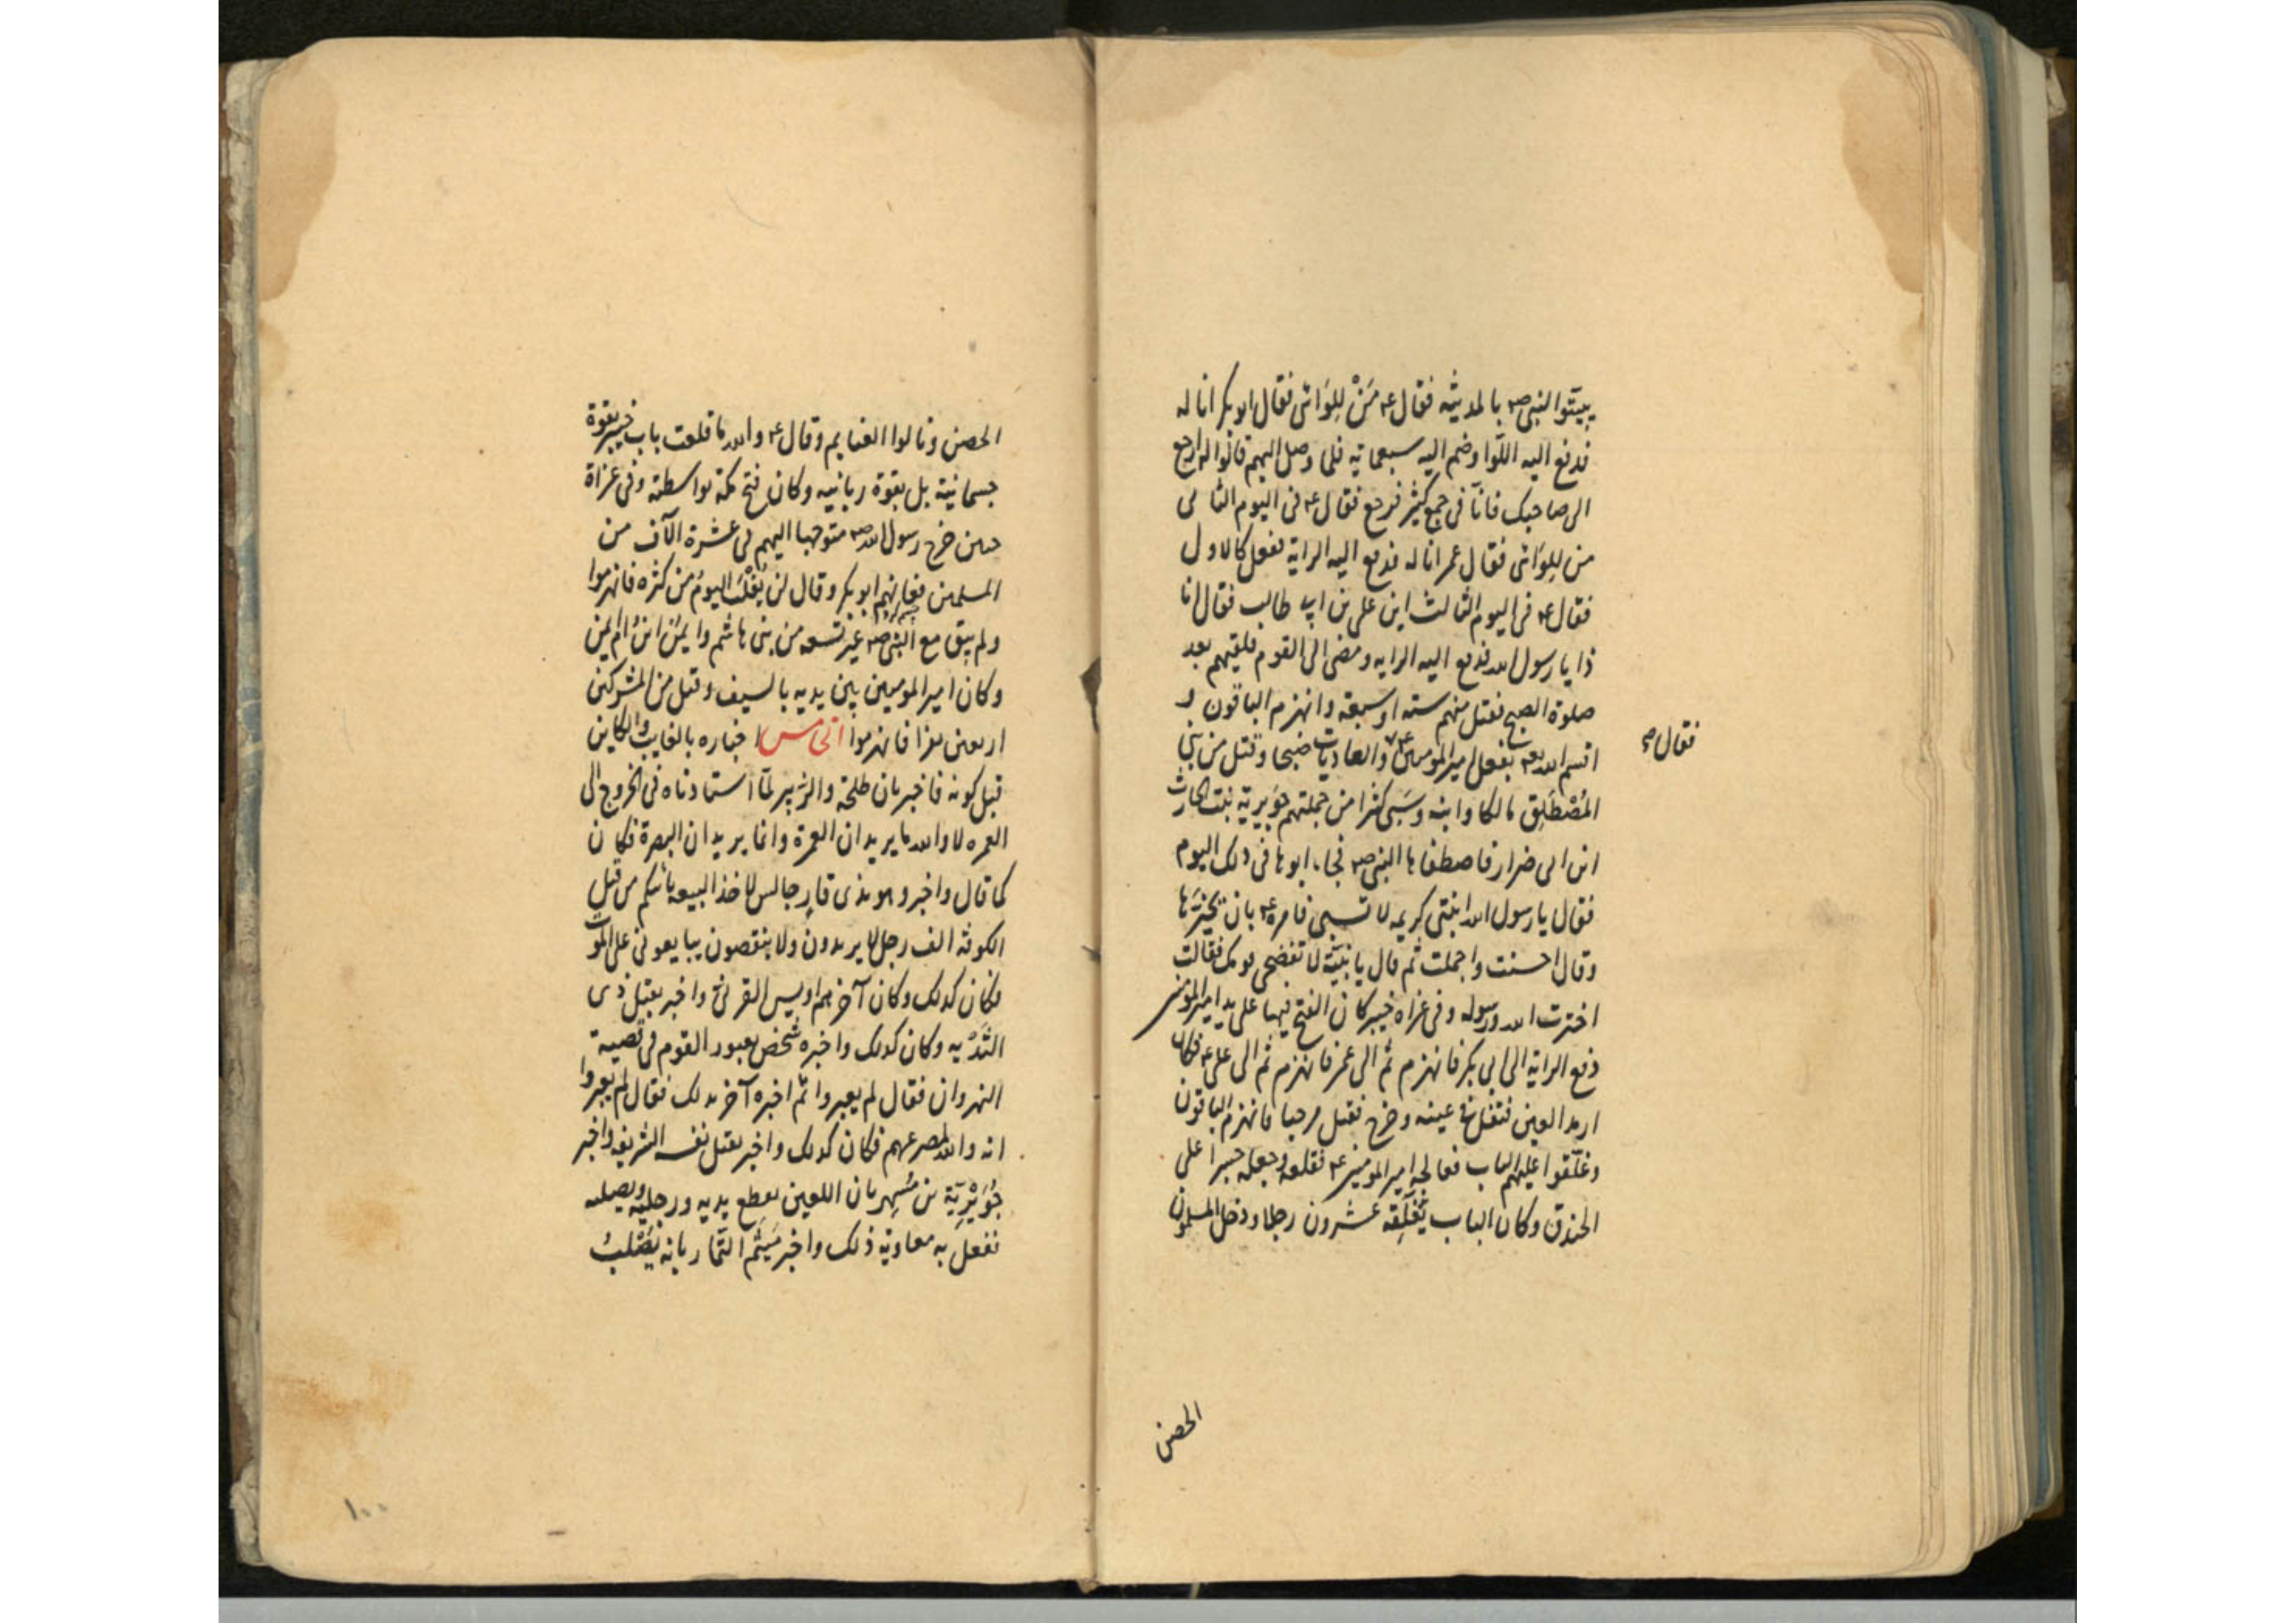 يبيتوا النبي صم بالمدينة فقال ع مَنْ لِلِوَائى فقال ابو بكر انا له
فدفع اليه اللّوا وضم اليه سبعماية فلما وصل اليهم قالوا له ارجع
الى صاحبك فانّا فى جمع كثير فرجع فقال ع فى اليوم الثانى
من لِلِوَائى فقال عمر انا له فدفع اليه الراية ففعل كالاول
فقال ع فى اليوم الثالث اين على بن ابى طالب فقال انا
ذا يا رسول الله فدفع اليه الرايه ومضى الى القوم فلقيهم بعد
صلوة الصبح فقتل منهم سته او سبعة وانهزم الباقون و
اقسم الله تعم بفعل امير المومنين ع فقال والعاديات ضبحا وقتل من بنى
المُصْطَلِق مالكا وابنه وسَبى كثيرا من جملتهم جُوَيرية بنت الحارث
ابن ابى ضرار فاصطفاها النبى صم فجاء ابوها فى ذلك اليوم
فقال يا رسول الله ابنتى كريمه لا تسبى فامره ع بان يخيّرَها
وقال احسنت واجملت ثم قال يا بُنيّة لا تفضحى قومك فقالت
اخترت الله ورسوله وفى غزاه خيبر كان الفتح فيها على يد امير المومنين
دفع الراية الى ابى بكر فانهزم ثم الى عمر فانهزم ثم الى على ع فكان
ارمد العين فتفل فى عينه وخرج فقتل مرحبا فانهزم الباقون
وغلّقوا عليهم الباب فعالجه امير المومنين ع فقلعه وجعله جسرا على
الخندق وكان الباب يُغْلِقه عشرون رجلا ودخل المسلمون
فقال
الحصن
الحصن ونالوا الغنايم وقال ع والله ما قلعت باب خيبر بقوة
جسمانية بل بقوة ربانيه وكان فتح مكة بواسطته وفى غزاة
حنين خرج رسول الله صم متوجها اليهم فى عشرة آلاف من
المسلمين فعانهم ابو بكر وقال لن يُغلَبَ اليومُ من كثره فانهزموا
ولم يبق مع النبى صم غير تسعه من بنى هاشم وايمَنُ ابنُ ام ايمن
وكان امير المومنين بين يديه بالسيف وقتل من المشركين
اربعين نفرا فانهزموا الخامس اخباره بالغايب والكاين
قبل كونه فاخبر بان طلحة والزبير لمّا استاذناه فى الخروج الى
العمره لا والله ما يريدان العمرة وانما يريدان البصرة فكان
كما قال واخبر وهو بذى قارٍ جالس لاخذ البيعه ياتيكم من قبل
الكوفة الف رجل لا يزيدون ولا ينقصون يبايعونى على الموت
فكان كذلك وكان آخرهم اويس القرنى واخبر بقتل ذى
الثُدَيه وكان كذلك واخبره شخص بعبور القوم فى قصية
النهروان فقال لم يعبروا ثم اخبره آخر بذلك فقال لم يعبروا
انه والله لمصرعهم فكان كذلك واخبر بقتل نفسه الشريفه واخبر
جُوَيْرِيَة بن مُسْهِر بان اللعين يقطع يديه ورجليه ويصلبه
ففعل به معاوية ذلك واخبر مَيثم التمّار بانه يُصْلَبُ
١٠٠